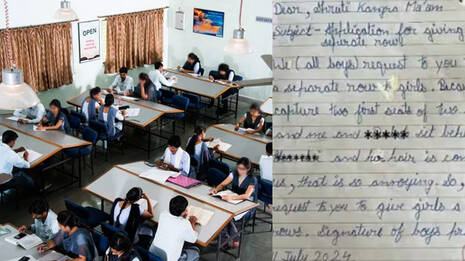 OPEN
Dear, Shruti Kangra Ma'am
Subject - Application for giving
seprate rows
(all boys) request to you
seprate row girls. Becau
capture two first seats of two
and me and ***** sit beh
and her hair is com
, that is so annoying. So,
request to you to give girls s
rows. Signature of boys pr
July 2024